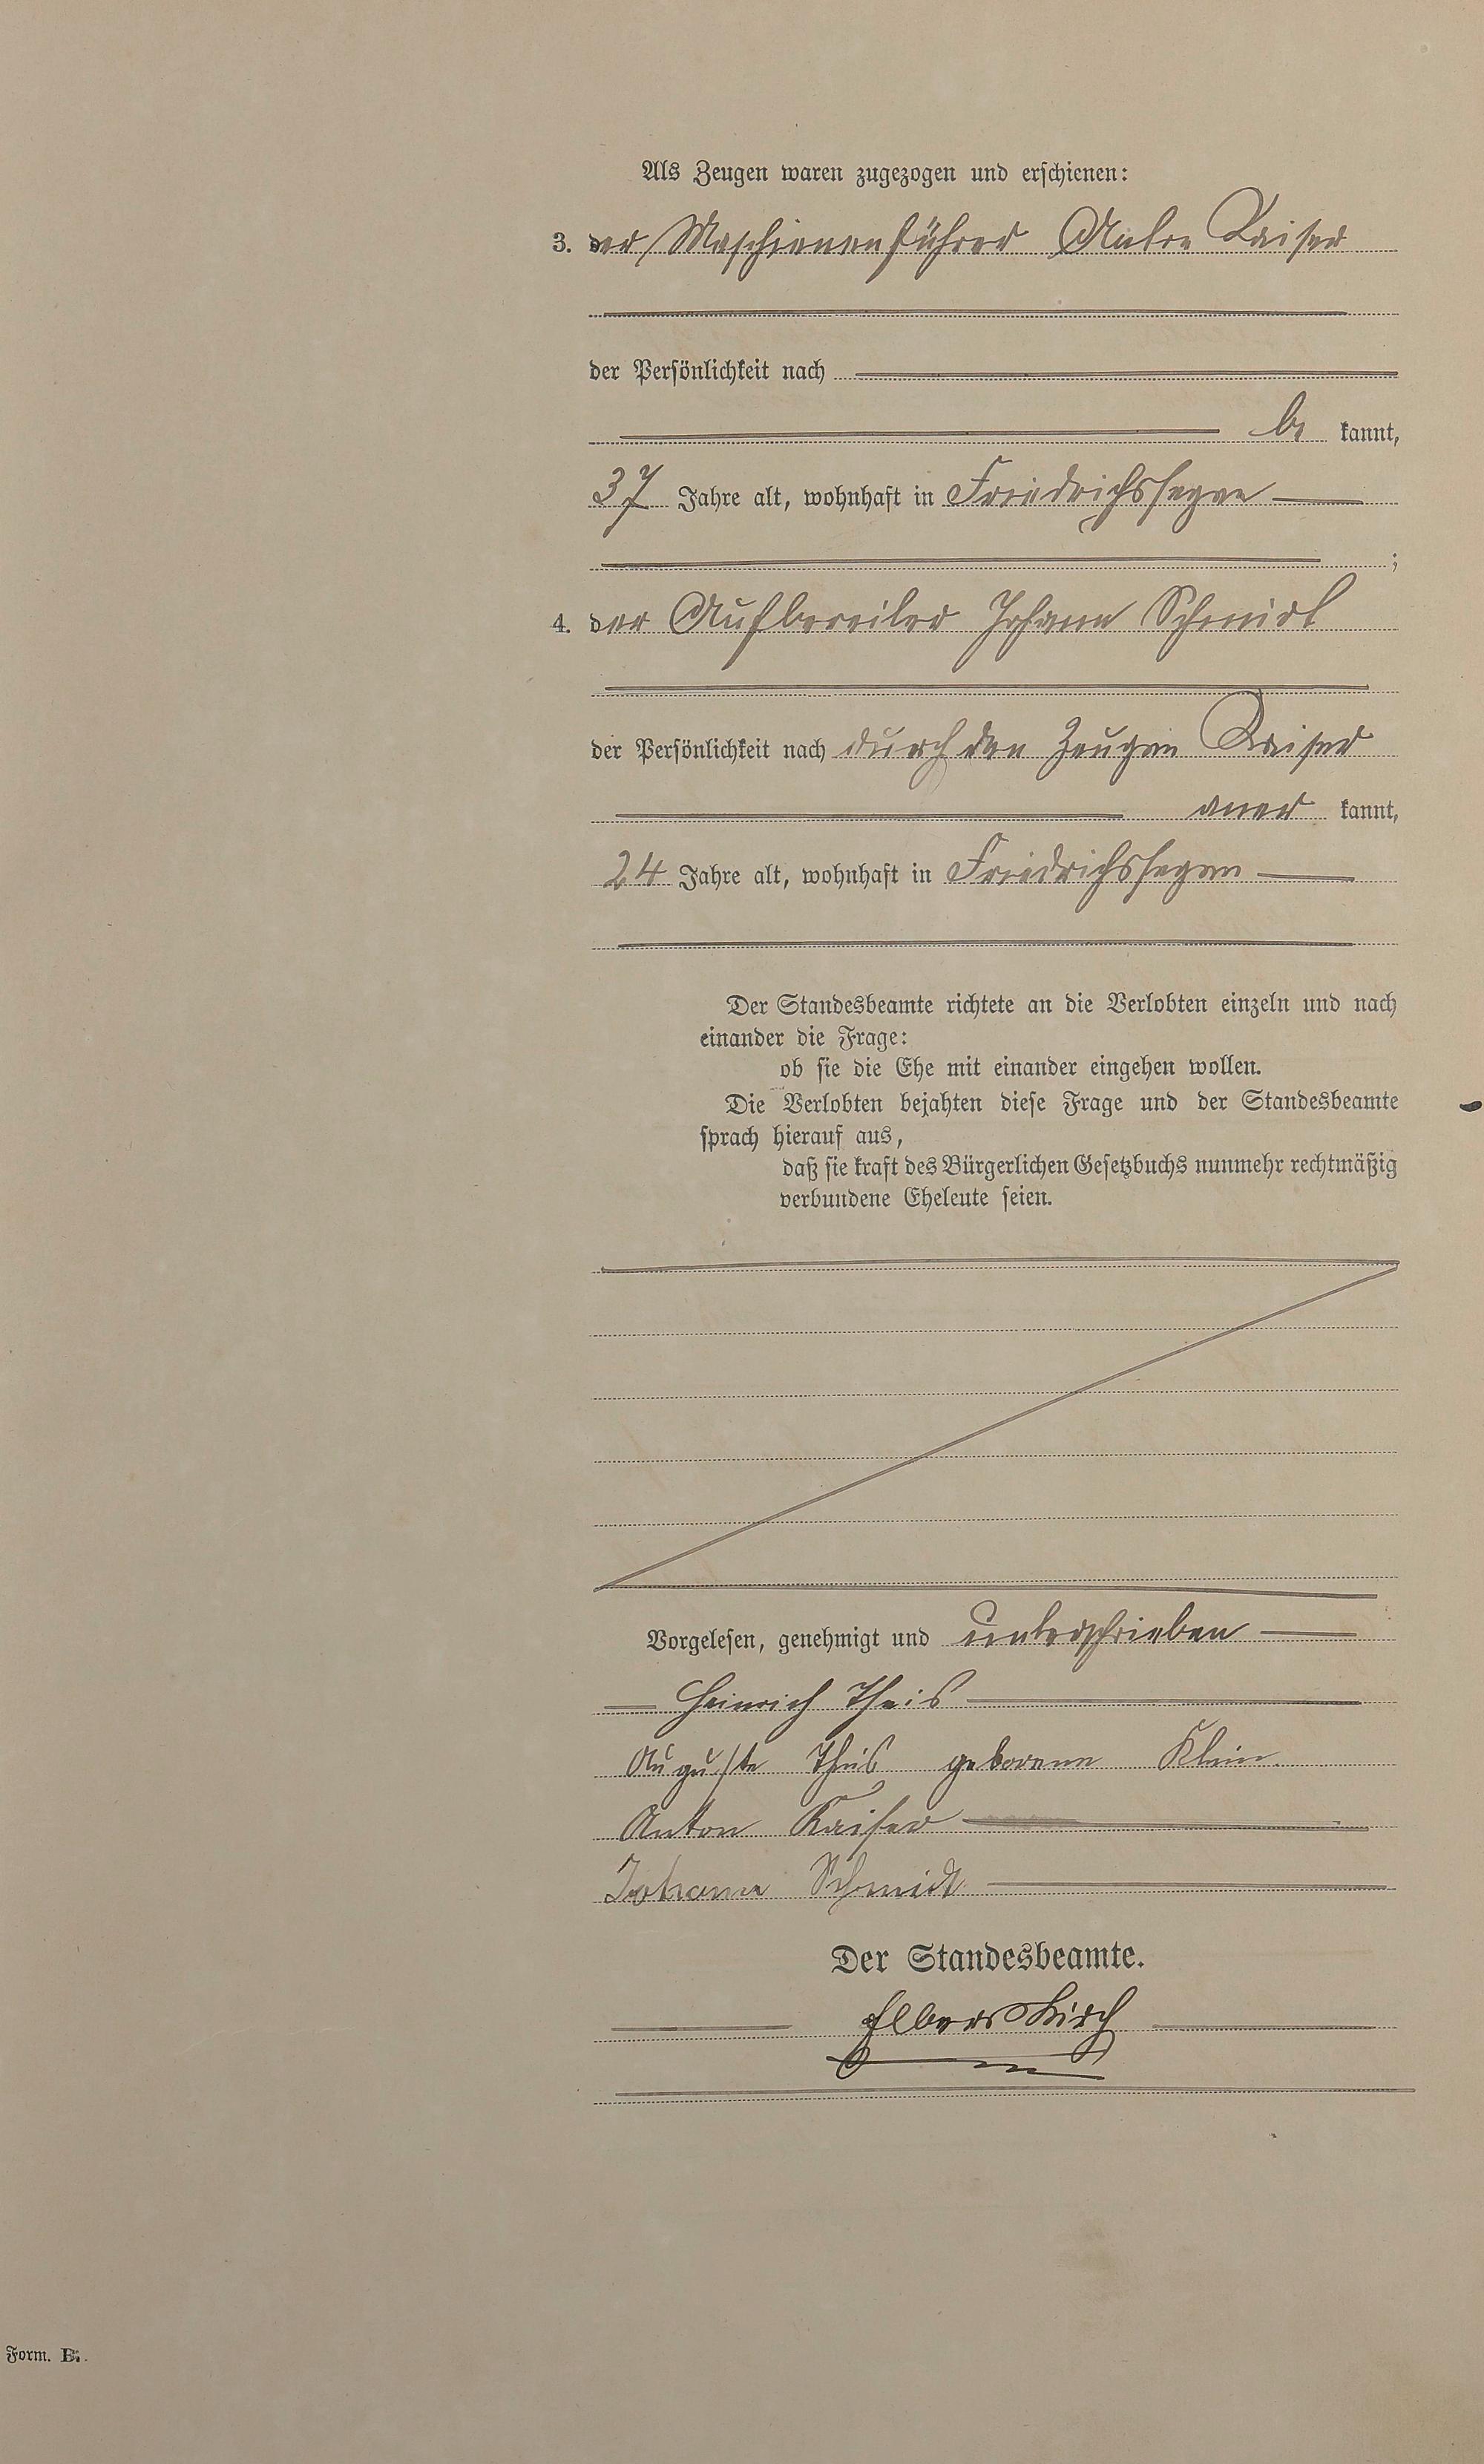 Als Zeugen waren zugezogen und erschienen:
3. der Maschienenführer Anton Kaiser
der Persönlichkeit nach
be kannt,
37 Jahre alt, wohnhaft in Friedrichssegen
;
4. der Aufbereiter Johann Schmidt
der Persönlichkeit nach durch den Zeugen Kaiser
aner kannt,
24 Jahre alt, wohnhaft in Friedrichssegen
Der Standesbeamte richtete an die Verlobten einzeln und nach
einander die Frage:
ob sie die Ehe mit einander eingehen wollen.
Die Verlobten bejahten diese Frage und der Standesbeamte
sprach hierauf aus,
daß sie kraft des Bürgerlichen Gesetzbuchs nunmehr rechtmäßig
verbundene Eheleute seien.
Vorgelesen, genehmigt und unterschrieben
Heinrich Theis
Auguste Theis geborene Klein.
Anton Kaiser
Johann Schmidt
Der Standesbeamte.
Elberskirch
Form. B.